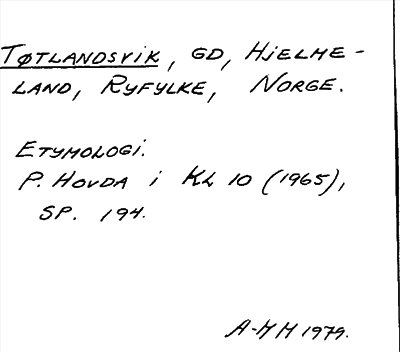 TØTLANDSVIK, GD, HJELME-
LAND, RYFYLKE, NORGE.
ETYMOLOGI.
P. HOVDA i KL 10 (1965),
SP. 194.
A-HH 1979.